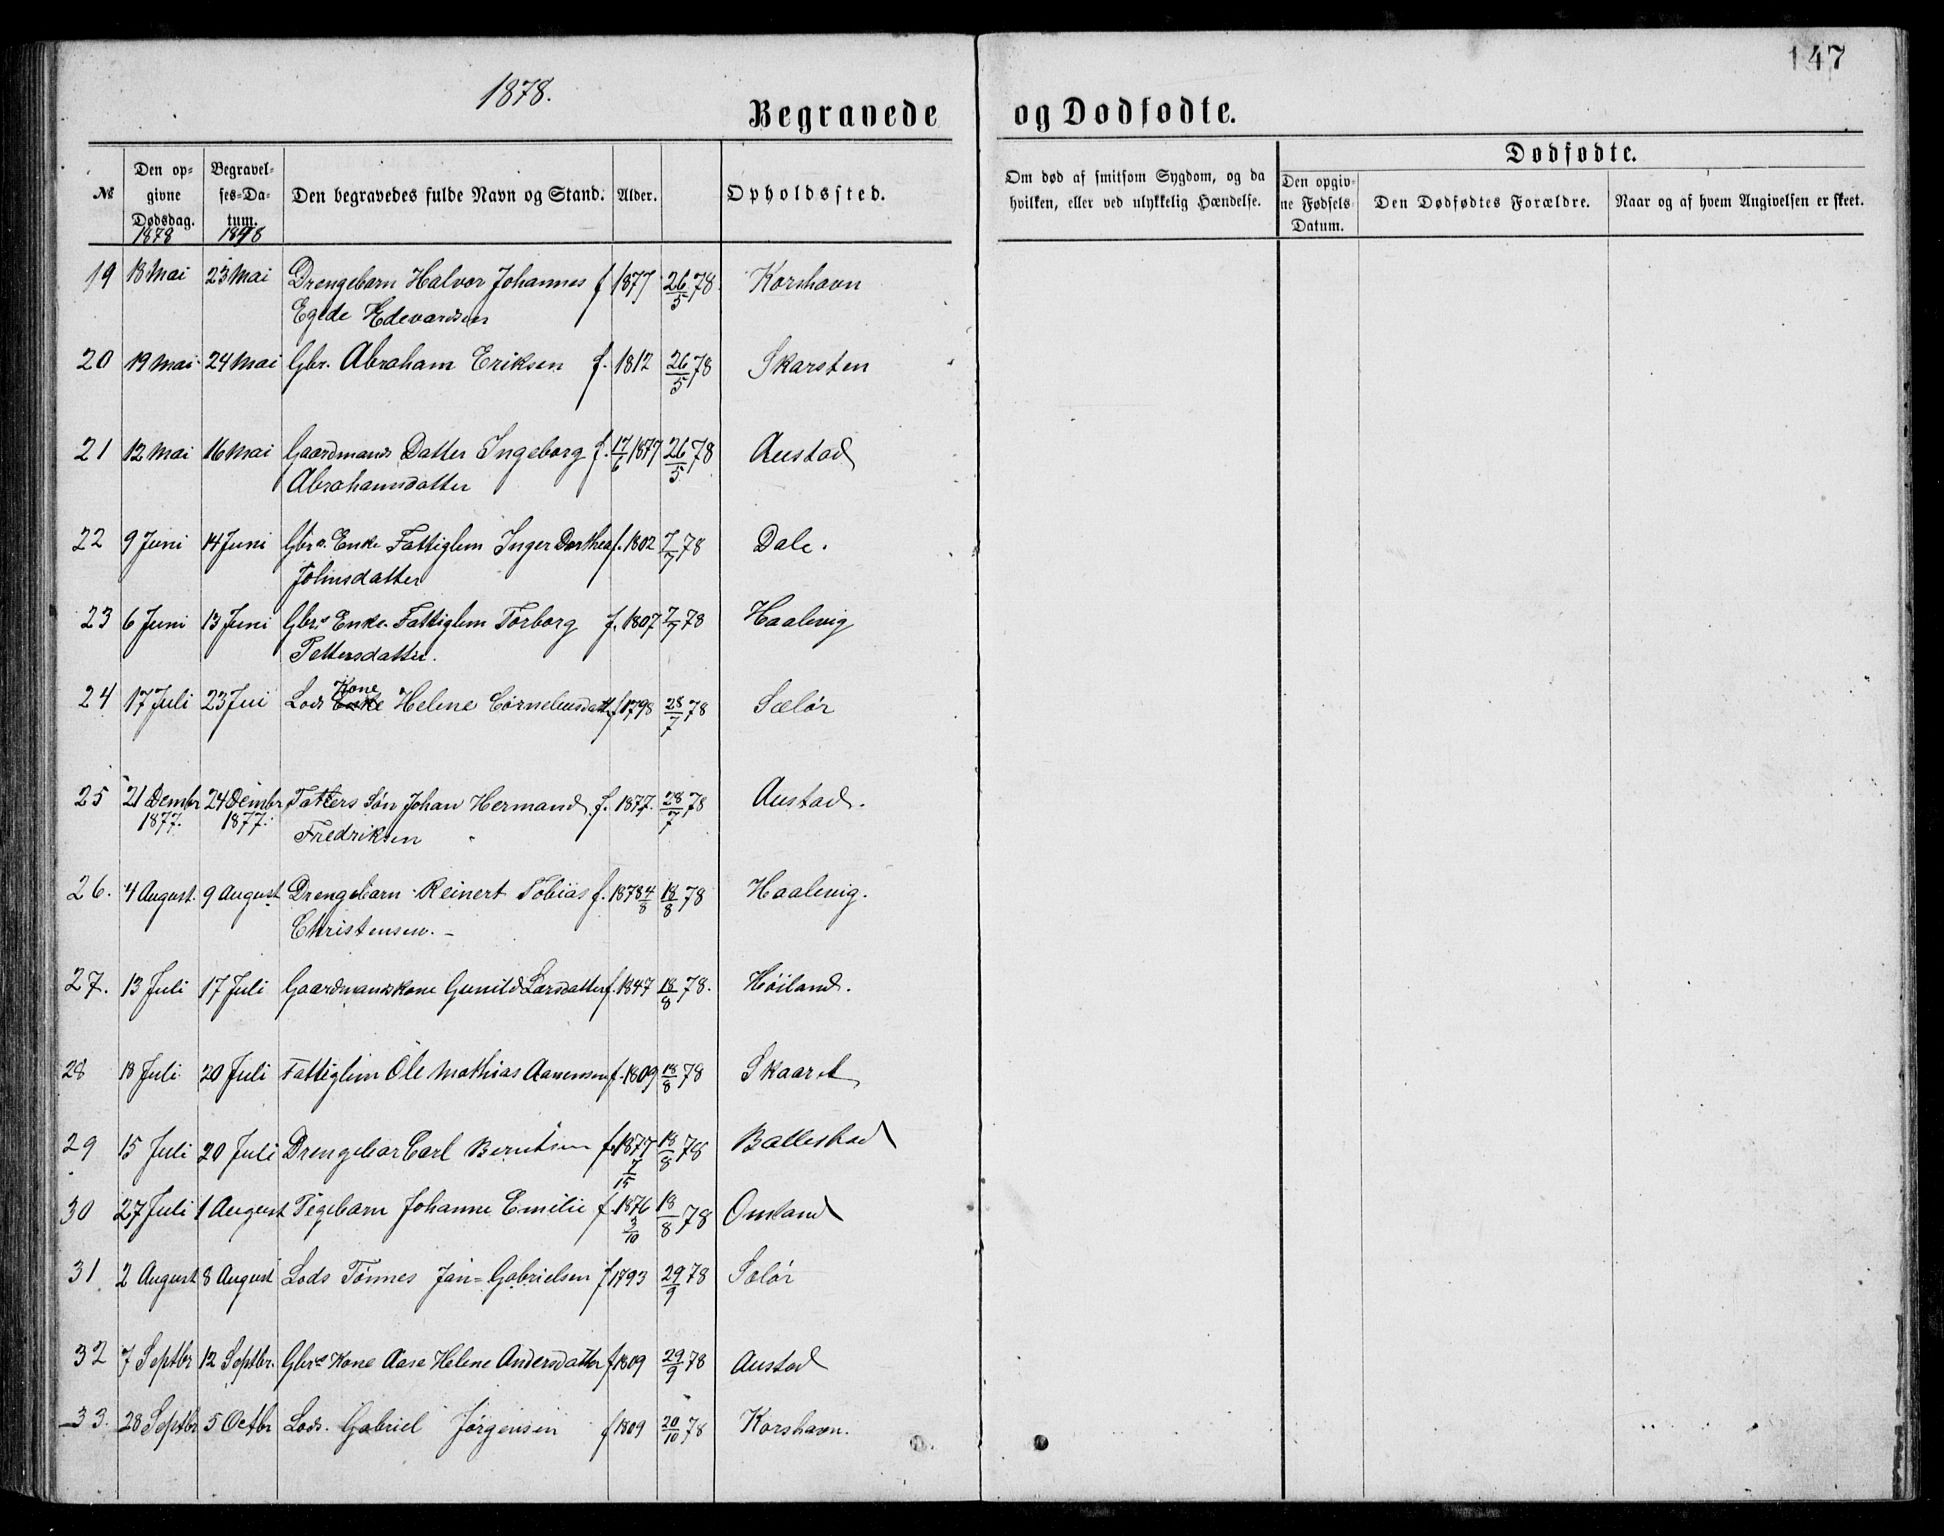 147
1878.
Begravede og Dødfødte.
Dødfødte.
№
Den op-
givne
Dødsdag.
1878
Begravel-
ses-Da-
tum.
1878
Den begravedes fulde Navn og Stand.
Alder.
Opholdssted.
Om død af smitsom Sygdom, og da
hvilken, eller ved ulykkelig Hændelse.
Den opgiv-
ne Fødsels-
Datum.
Den Dødfødtes Forældre.
Naar og af hvem Angivelsen er skeet.
19 18 Mai 23 Mai Drengebarn Halvor Johannes f 1877 26/5 78. Korshavn
Egede Edevardsen
20 19 Mai 24 Mai Gbr. Abraham Eriksen f. 1812 26/5 78 Skarsten
21 12 Mai 16 Mai Gaardmands Datter Ingeborg f. 17/6 1877 26/5 78 Austad
Abrahamsdatter
22 9 Juni 14 Juni Gbrs. Enke Fattiglem Inger Dorthea f. 1802 7/7 78 Dale.
Johnsdatter
23 6 Juni 13 Juni Gbrs. Enke Fattiglem Torborg f. 1807 7/7 78 Haalevig
Pettersdatter.
Kone
24 17 Juli 23 Jui Lods Enke Helene Corneliusdatt. f 1798 28/7 78 Sælør
25 21 Dembr 24 Dembr Taters Søn Johan Hermand f. 1877. 28/7 78 Austad.
1877. 1877. Fredriksen
26. 4 August. 9 August Drengebarn Reinert Tobias f. 1878 4/8 18/8 78 Haalevig.
Christensen.
27. 13 Juli 17 Juli Gaardmandskone Gunild Larsdatter f. 1847 18/8 78. Høiland.
28 18 Juli 20 Juli Fattiglem Ole Mathias Aanensen f. 1809 18/8 78 Skaaret
29 15 Juli 20 Juli Drengebar Carl Berntsen f. 1877 18/8 78 Ballestad
7/15
30 27 Juli 1 August Pigebarn Johanne Emilie f. 1876 18/8 78 Omland
3/10
31 2 August 8 August Lods Tønnes Jan= Gabrielsen f 1793 29/9 78 Sælør
32 7 Septbr 12 Septbr. Gbrs Kone Aase Helene Andersdatter f 1809 29/9 78 Austad
33. 28 Septbr 5 Octbr Lods. Gabriel Jørgensen f 1809 20/10 78 Korshavn.